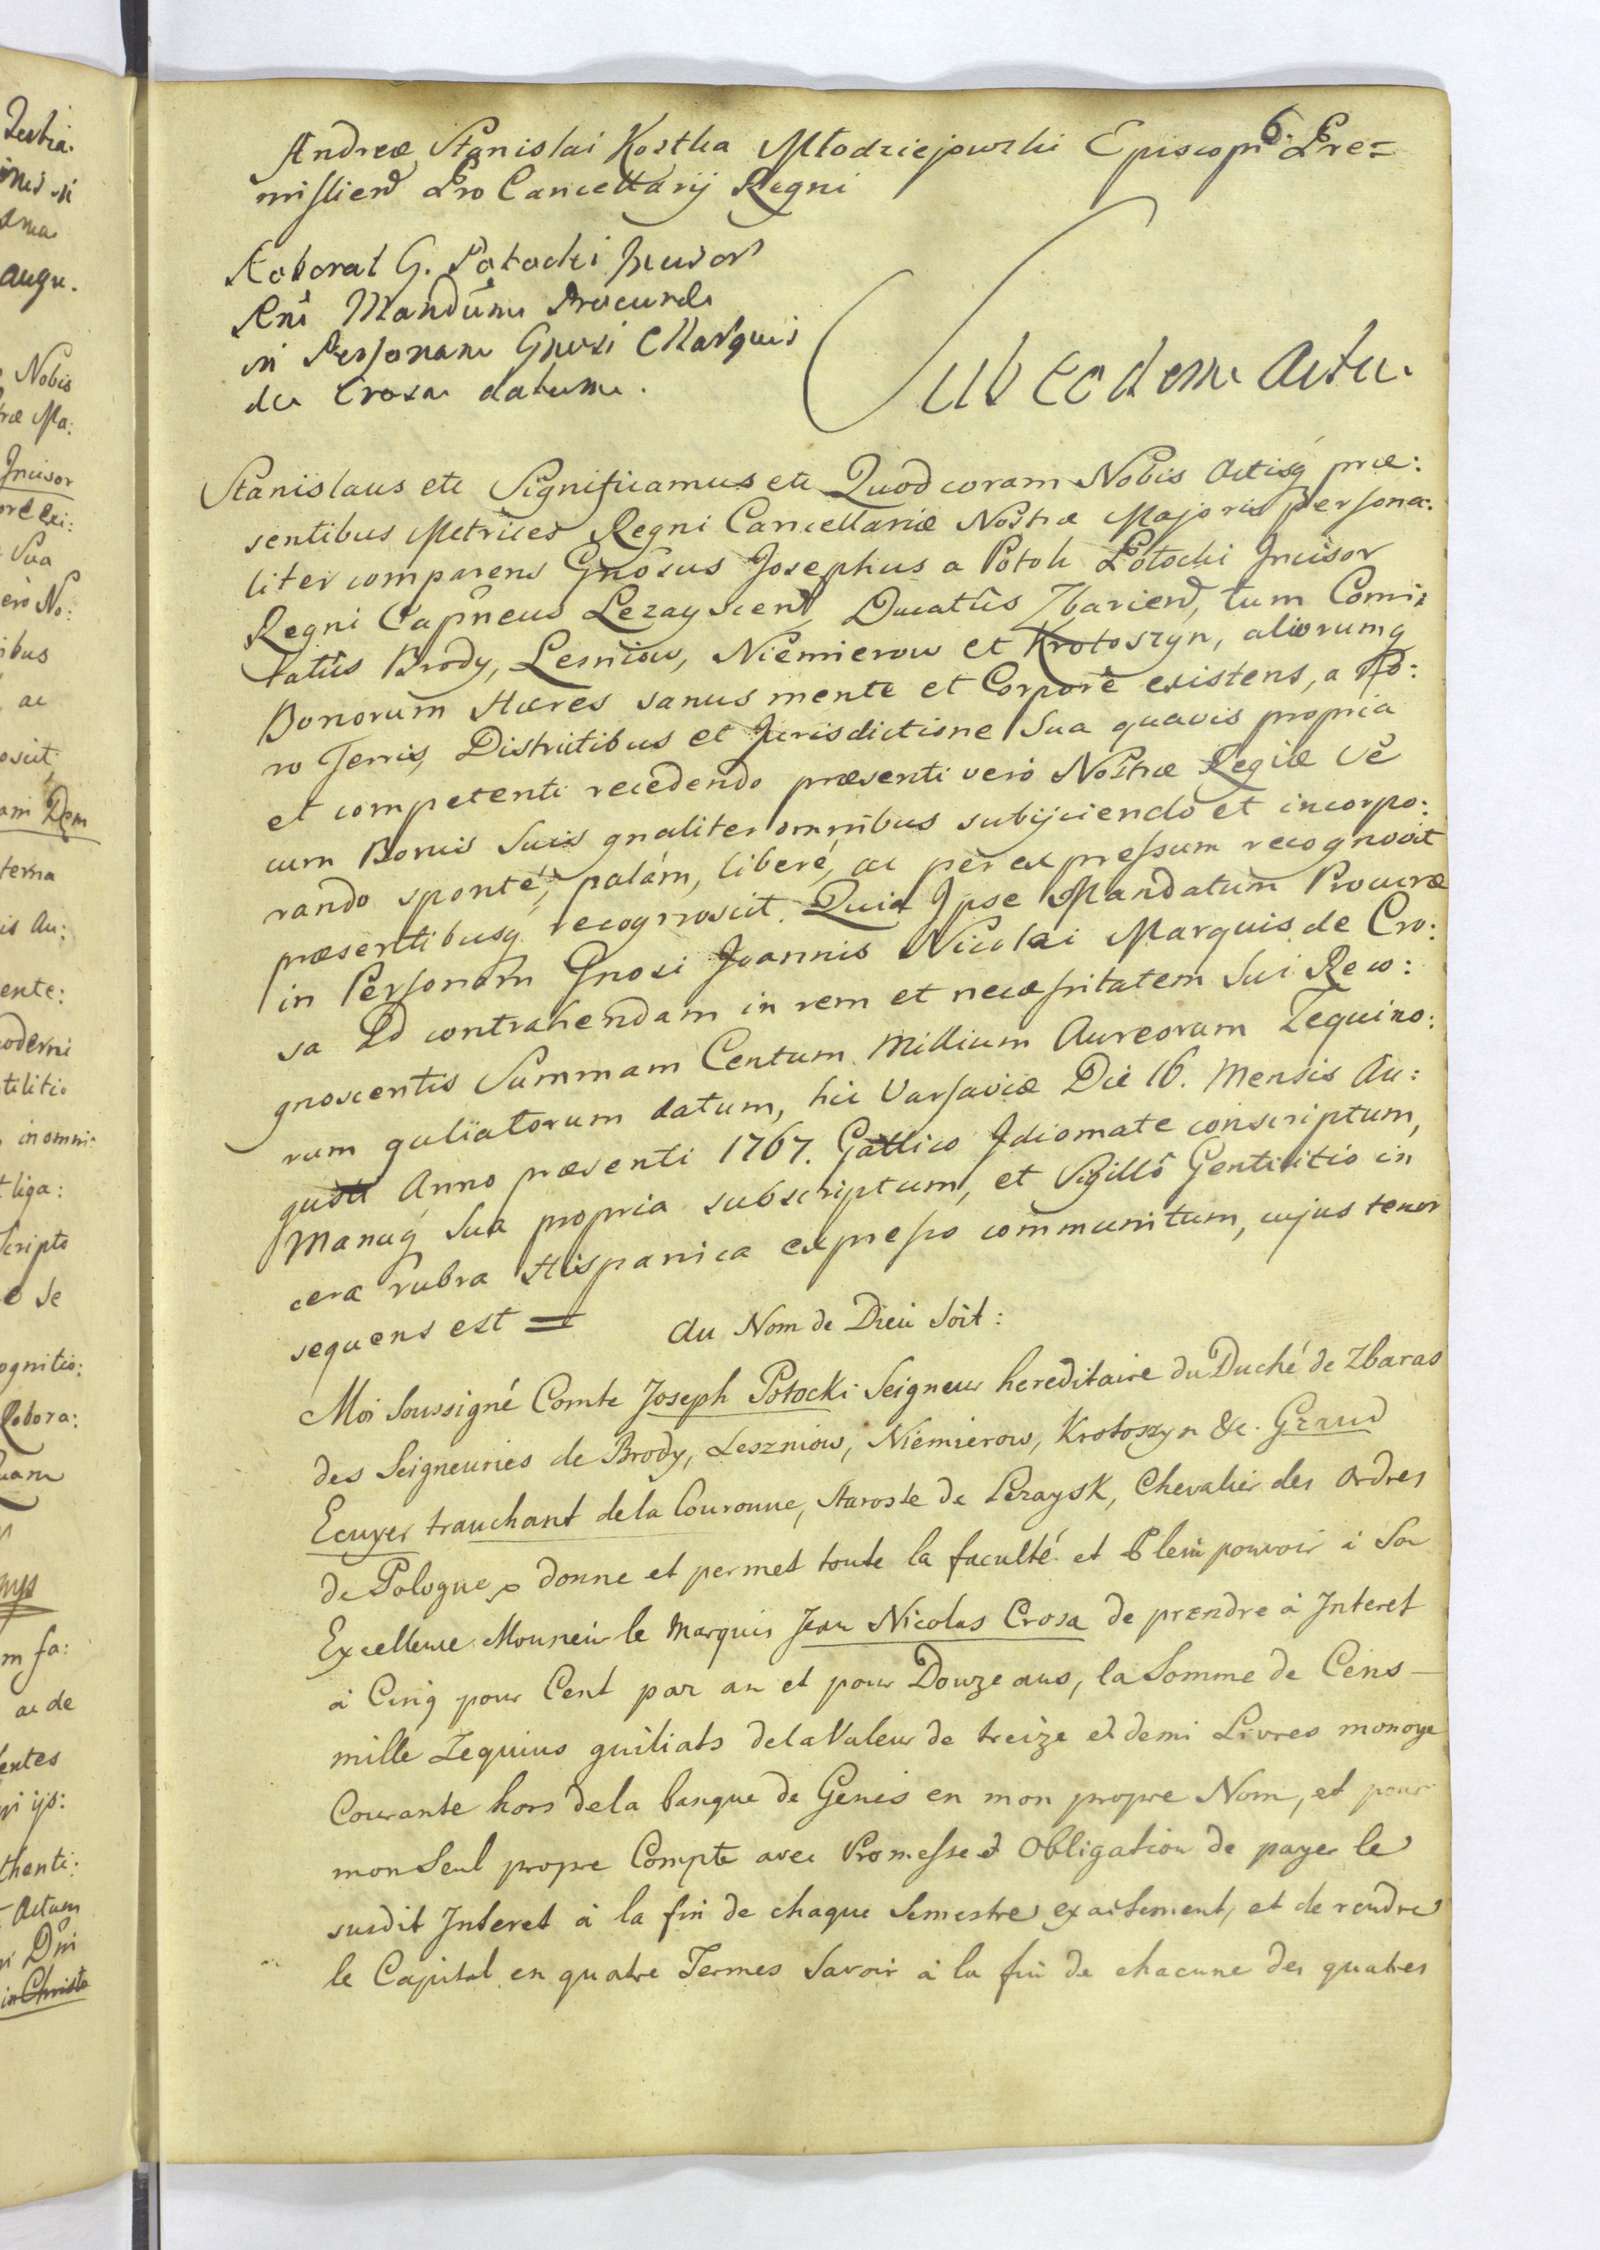 6.
Andreæ Stanislai Kostka Młodziejowski Episcopi Pre=
mislien Pro Cancellarij Regni
Roborat G. Potocki Incisor
Rni Mandum Procurae
in Personam Gnosi Marquis
de Crosa datum.
Sub eodem Actu.
Stanislaus etc Significamus etc Quod coram Nobis Actisq præ:
sentibus Metrices Regni Cancellariæ Nostræ Majoris persona:
liter comparens Gnosus Josephus a Potok Potocki Incisor
Regni Capneus Lezayscen, Ducatûs Zbarien, tum Comi:
tatûs Brody, Lesniow, Niemierow et Krotoszyn, aliorumq
Bonorum Hæres sanus mente et Corpore existens, a Fo:
ro Terris, Districtibus et Jurisdictione Sua quavis propria
et competenti recedendo præsenti verò Nostræ Regiæ se
cum Bonis Suis gnaliter omnibus subijciendo et incorpo:
rando sponté, palám, liberé, ac per expressum recognovit
præsentibusq recognoscit. Quia Ipse Mandatum Procuræ
in Personam Gnosi Joannis Nicolai Marquis de Cro:
sa Ad contrahendam in rem et necessitatem Sui Reco:
gnoscentis Summam Centum Millium Aureorum Zequino:
rum guliatorum datum, hic Varsaviæ Die 16. Mensis Au:
gusti Anno præsenti 1767. Gallico Idiomate conscriptum,
Manuq Sua propria subscriptum, et Sigillô Gentilitio in
cera rubra Hispanica expresso communitum, cujus tenor
sequens est = Au Nom de Dieu Soit:
Moi Soussigné Comte Joseph Potocki Seigneur hereditaire du Duché de Zbaras
des Seigneuries de Brody, Leszniow, Niemierow, Krotoszyn &c. Grand
Ecuyer tranchant de la Couronne, Staroste de Lezaysk, Chevalier des Ordres
de Pologne donne et permet toute la faculté et Plein pouvoir à Son
Excellence Monsieur le Marquis Jean Nicolas Crosa de prendre à Interet
à Cinq pour Cent par an et pour Douze ans, la Somme de Cens —
mille Zequins guiliats de la Valeur de treize et demi Livres monoye
Courante hors de la banque de Genes en mon propre Nom, et pour
mon Seul propre Compte avec Promesse et Obligation de payer le
susdit Interet à la fin de chaque Semestre exactement, et de rendre
le Capital en quatre Termes Savoir à la fin de chacune des quatres